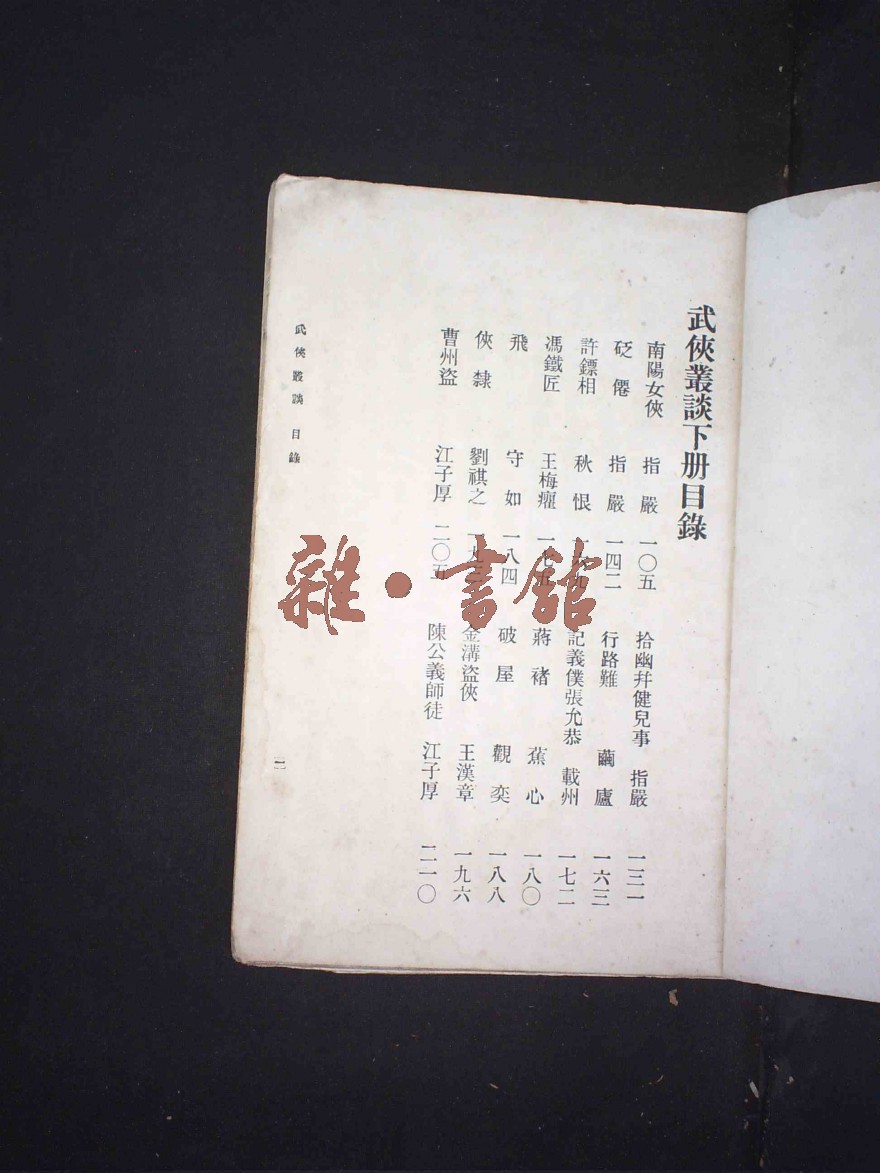 武俠叢談下册目錄
南陽女俠 指嚴 一〇五 拾幽幷健兒事 指嚴 一三一
砭僊 指嚴 一四二 行路難 繭廬 一六三
許鏢相 秋恨 記義僕張允恭 載州 一七二
馮鐵匠 王梅癯 一七五 蔣褚 蕉心 一八〇
飛 守如 一八四 破屋 觀奕 一八八
俠隸 劉祺之 金溝盜俠 王漢章 一九六
曹州盜 江子厚 二〇五 陳公義師徒 江子厚 二一〇
武俠叢談 目錄
二
雜·書館